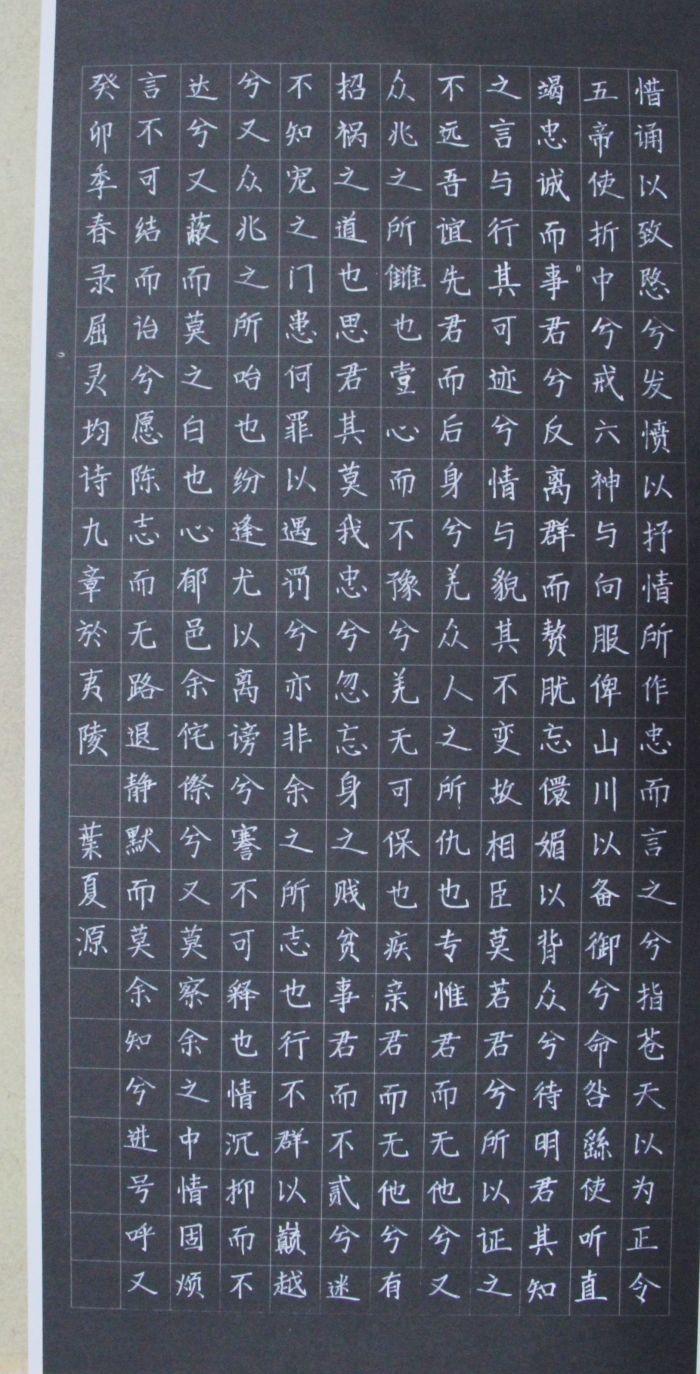 惜诵以致愍兮发愤以抒情所作忠而言之兮指苍天以为正令
五帝使折中兮戒六神与向服俾山川以备御兮命咎繇使听直
竭忠诚而事君兮反离群而赘肬忘儇媚以背众兮待明君其知
之言与行其可迹兮情与貌其不变故相臣莫若君兮所以证之
不远吾谊先君而后身兮羌众人之所仇也专惟君而无他兮又
众兆之所雠也壹心而不豫兮羌无可保也疾亲君而无他兮有
招祸之道也思君其莫我忠兮忽忘身之贱贫事君而不贰兮迷
不知宠之门患何罪以遇罚兮亦非余之所志也行不群以巅越
兮又众兆之所咍也纷逢尤以离谤兮謇不可释也情沉抑而不
达兮又蔽而莫之白也心郁邑余侘傺兮又莫察余之中情固烦
言不可结而诒兮愿陈志而无路退静默而莫余知兮进号呼又
癸卯季春录屈灵均诗九章於夷陵 葉夏源